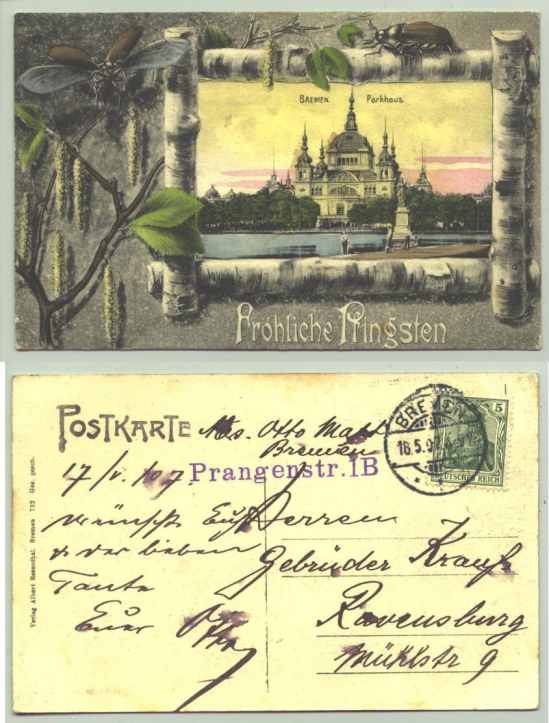 BREMEN Parkhaus.
Fröhliche Pfingsten
POSTKARTE
Abs. Otto
Bremen
Prangenstr. 1B
BREMEN
5
DEUTSCHES REICH
17/V. 07
wünscht Euch
& der lieben
Tante
Euer Otto
Herren
Gebrüder Krauß
Ravensburg
Mühlstr 9
Verlag Albert Rosenthal, Bremen 712 Ges. gesch.